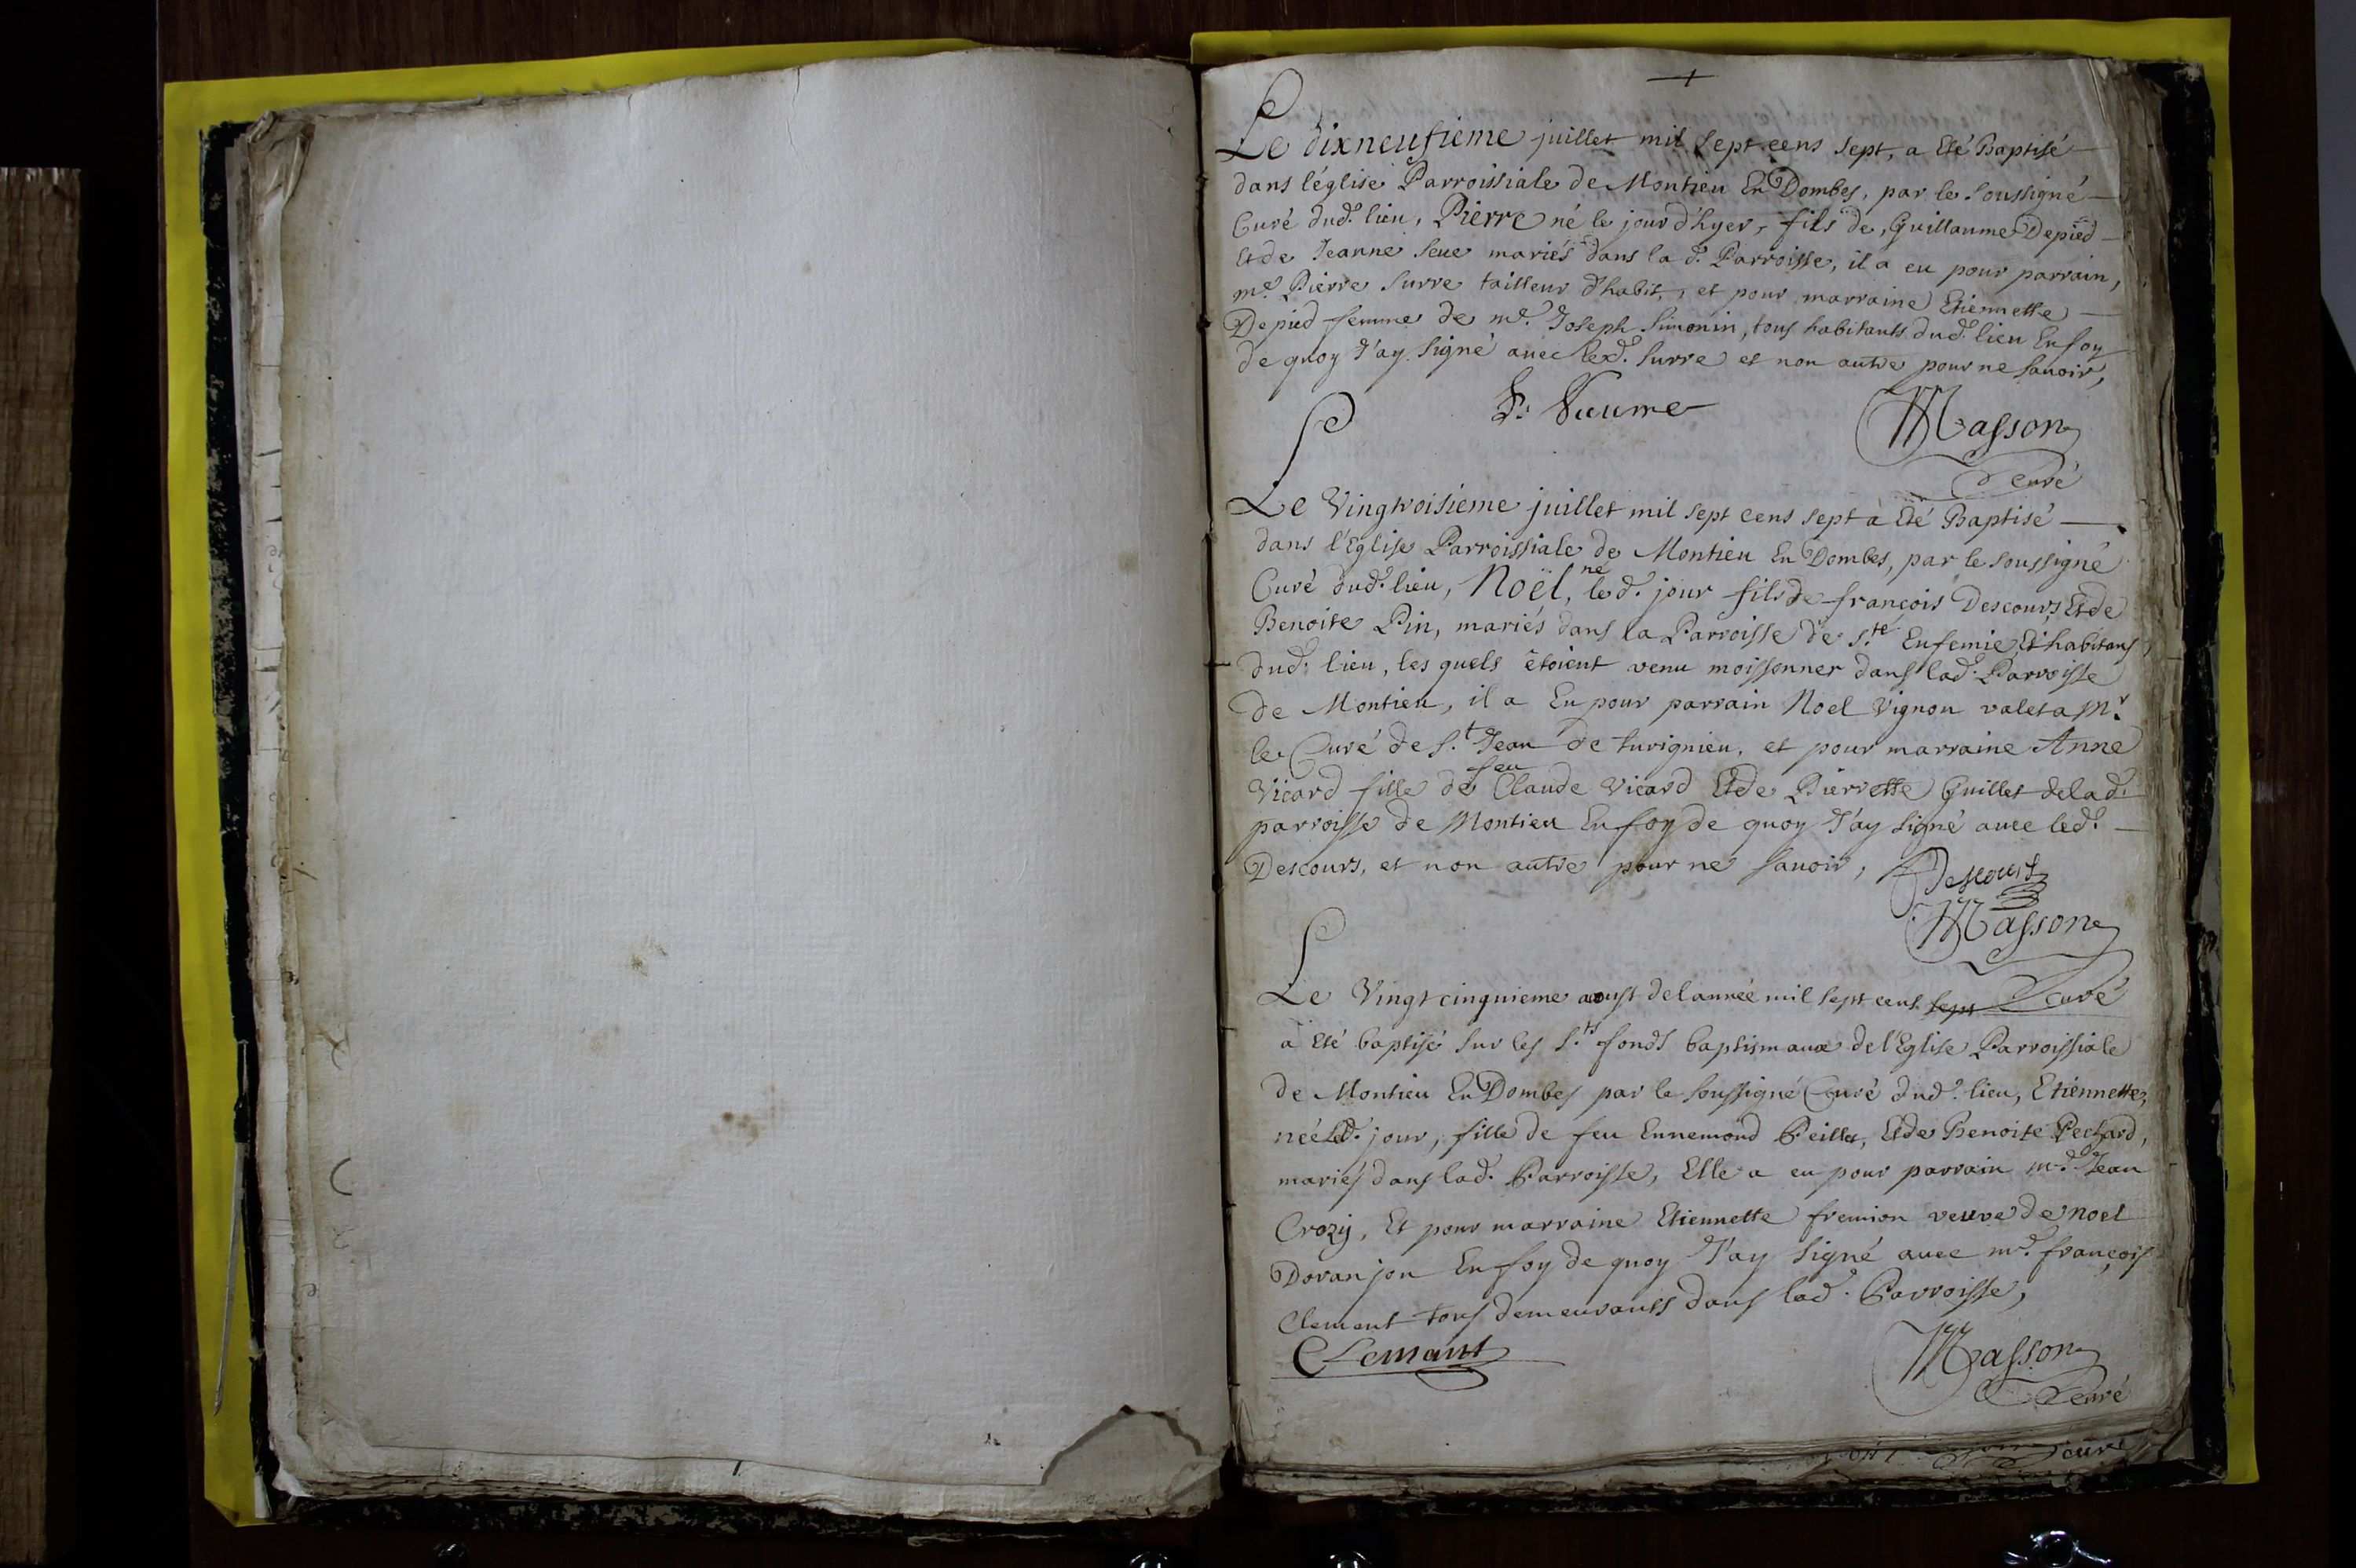 Le dixneufieme juillet mil sept cens sept, a Eté Baptisé
dans l'église Parroissiale de Montieu En Dombes, par le soussigné
Curé dud. lieu, Pierre né le jour d'hyer, fils de, Guillaume Depied
Et de Jeanne seue mariés dans la d. Parroisse, il a eu pour parrain,
me. Pierre Surre tailleur d'habit, et pour marraine Etiennette
Depied femme de me. Joseph Simonin, tous habitants dud. lieu En foy
de quoy J'ay signé avec led. Surre et non autre pour ne sauoir,
P.
Masson
curé
Le Vingtroisieme juillet mil sept cens sept à Eté Baptisé
dans l'Eglise Parroissiale de Montieu En Dombes, par le soussigné
Curé dud. lieu, Noël, né led. jour fils de françois Descours, Et de
Benoite Pin, mariés dans la Parroisse de s.te Eufemie, Et habitans
dud. lieu, les quels étoient venu moissonner dans lad. Parroisse
de Montieu, il a Eu pour parrain Noel Vignon valet a Mr.
le Curé de s.t Jean de turignieu, et pour marraine Anne
Vicard fille de feu Claude Vicard Et de Pierrette Guillet de lad.
parroisse de Montieu En foy de quoy J'ay signé auec led.
Descours, et non autre pour ne sauoir,
Descours
Masson
curé
Le Vingt cinquieme aoust de l'année mil sept cens sept
a Eté baptisé sur les s.ts fonds baptismaux de l'Eglise Parroissiale
de Montieu En Dombes par le soussigné Curé dud. lieu, Etiennette,
née led. jour, fille de feu Ennemond Peillet, Et de Benoite Pechard,
mariés dans lad. Parroisse, Elle a eu pour parrain me. Jean
Crozy, Et pour marraine Etiennette fremion veuve de noel
Doranjon En foy de quoy J'ay signé auec me. françois
Clement tous demeurants dans lad. Parroisse,
Clemant
Masson
curé
curé